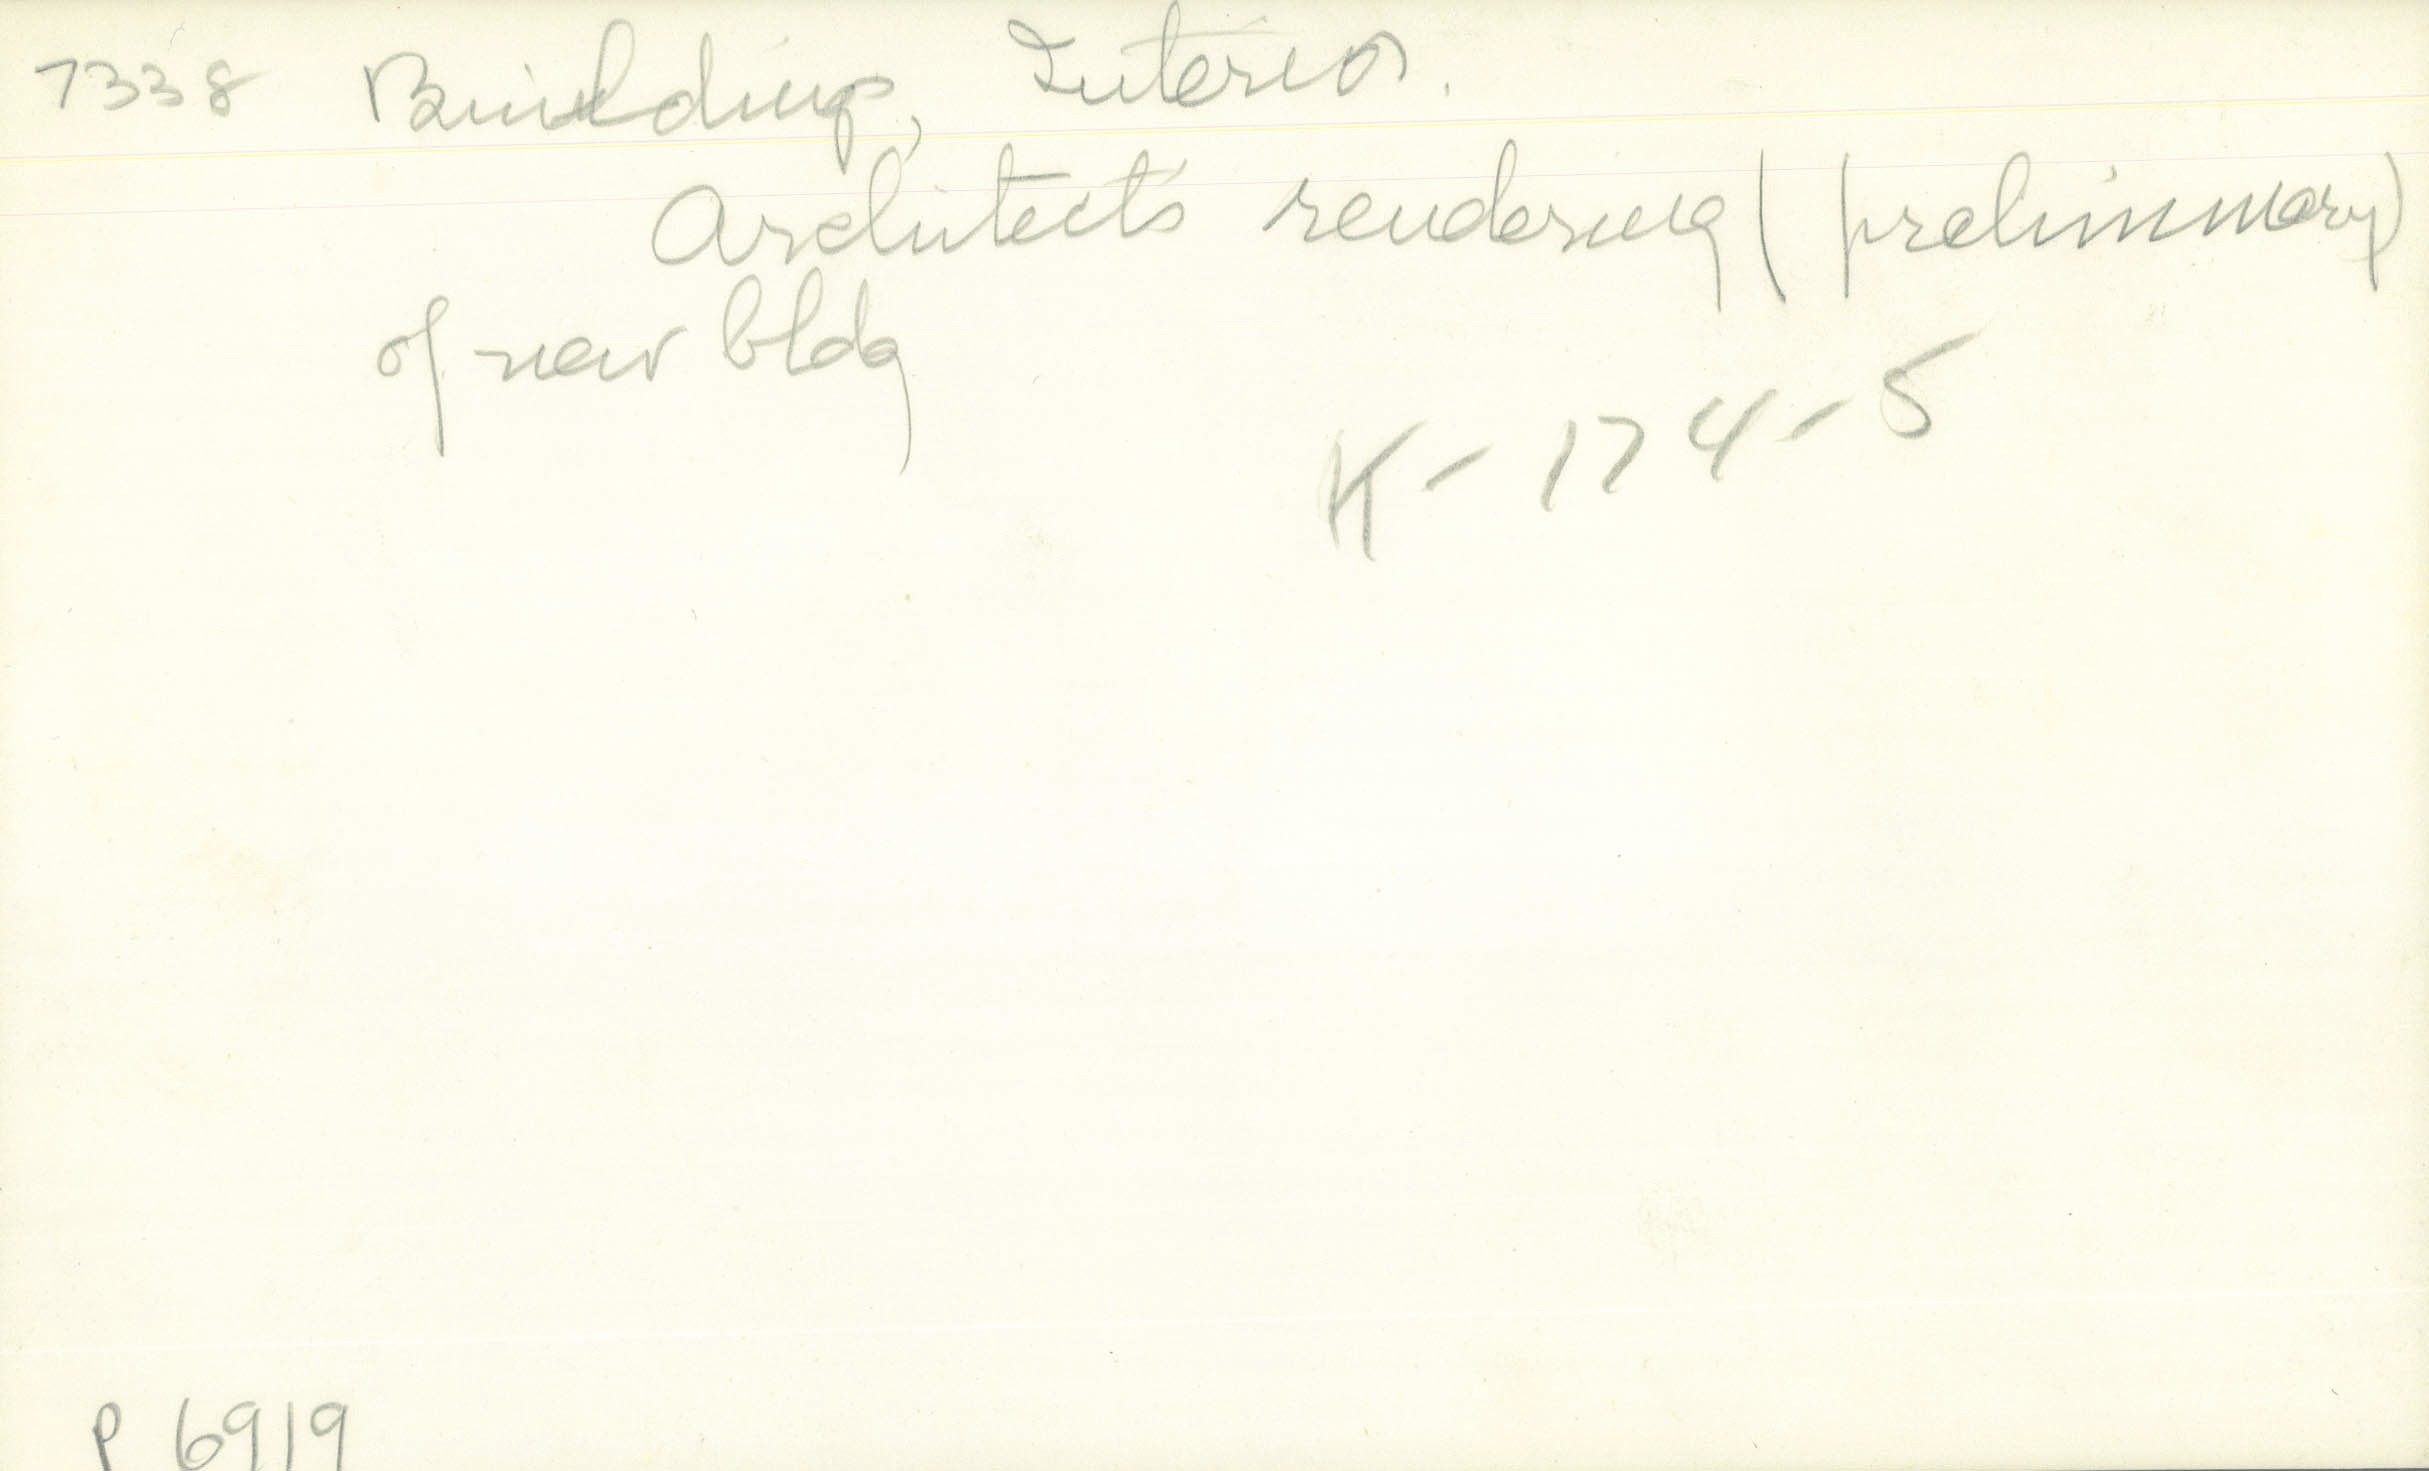 7338 Building, Interior.
Architects rendering (preliminary)
of new bldg
K-174-5
P 6919